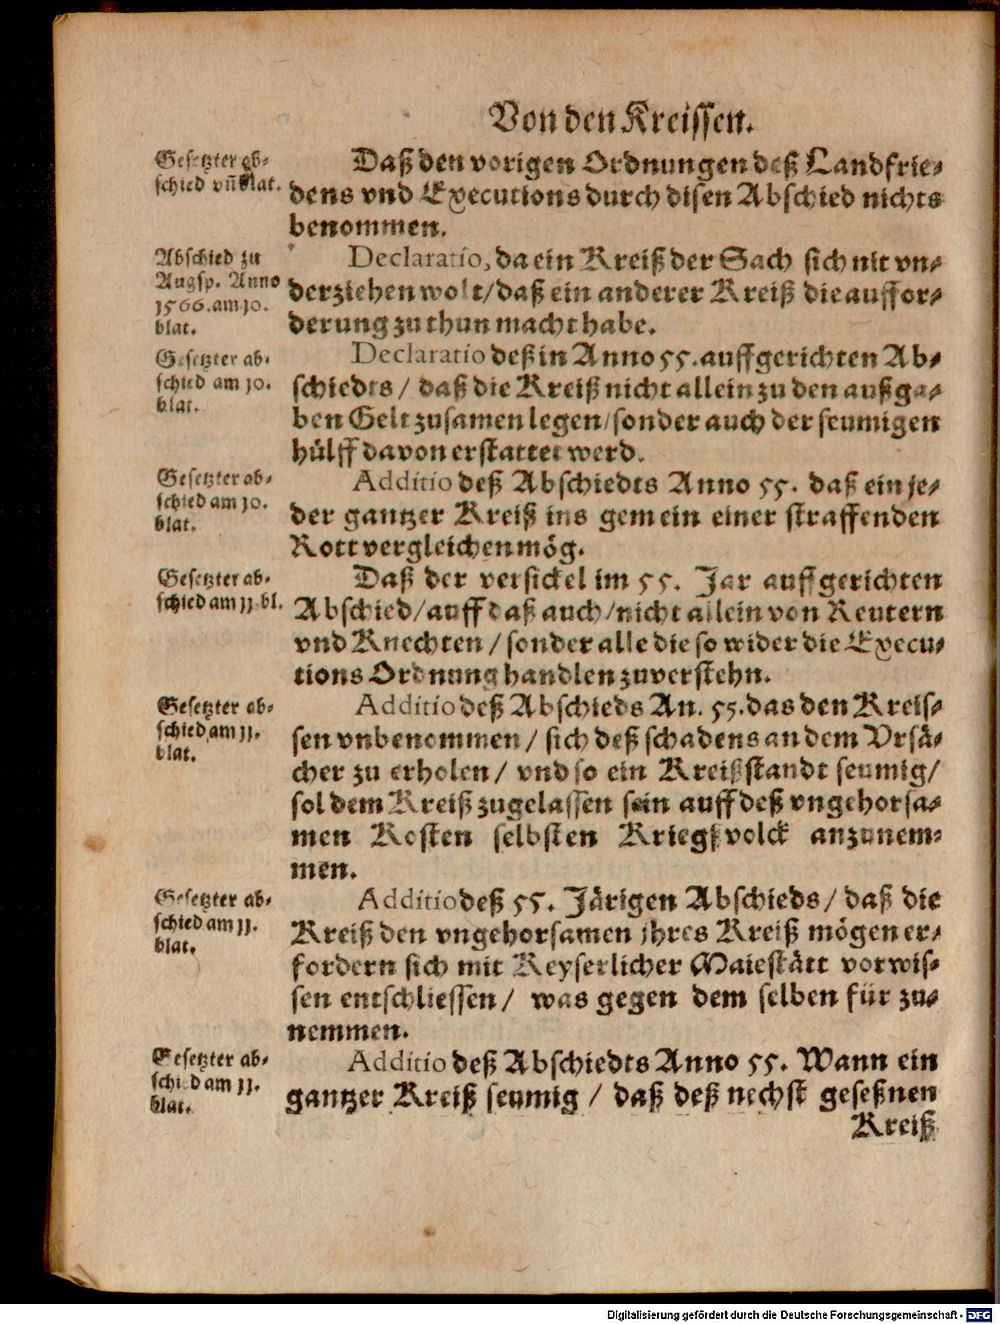 Von den Kreissen.
Gesetzter ab-
schied vñ blat.
Daß den vorigen Ordnungen deß Landfrie-
dens vnd Executions durch disen Abschied nichts
benommen.
Abschied zu
Augsp. Anno
1566. am 10.
blat.
Declaratio, da ein Kreiß der Sach sich nit vn-
derziehen wolt / daß ein anderer Kreiß die auffor-
derung zu thun macht habe.
Gesetzter ab-
schied am 10.
blat.
Declaratio deß in Anno 55. auffgerichten Ab-
schiedts / daß die Kreiß nicht allein zu den außga-
ben Gelt zusamen legen / sonder auch der seumigen
hülff davon erstattet werd.
Gesetzter ab-
schied am 10.
blat.
Additio deß Abschiedts Anno 55. daß ein je-
der gantzer Kreiß ins gemein einer straffenden
Rott vergleichen mög.
Gesetzter ab-
schied am 11. bl.
Daß der versickel im 55. Jar auffgerichten
Abschied / auff daß auch / nicht allein von Reutern
vnd Knechten / sonder alle die so wider die Execu-
tions Ordnung handlen zuverstehn.
Gesetzter ab-
schied am 11.
blat.
Additio deß Abschieds An. 55. das den Kreis-
sen vnbenommen / sich deß schadens an dem Vrsä-
cher zu erholen / vnd so ein Kreißstandt seumig /
sol dem Kreiß zugelassen sein auff deß vngehorsa-
men Kosten selbsten Kriegßvolck anzunem-
men.
Gesetzter ab-
schied am 11.
blat.
Additio deß 55. Järigen Abschieds / daß die
Kreiß den vngehorsamen jhres Kreiß mögen er-
fordern sich mit Keyserlicher Maiestätt vorwis-
sen entschliessen / was gegen dem selben für zu-
nemmen.
Gesetzter ab-
schied am 11.
blat.
Additio deß Abschiedts Anno 55. Wann ein
gantzer Kreiß seumig / daß deß nechst geseßnen
Kreiß
Digitalisierung gefördert durch die Deutsche Forschungsgemeinschaft - DFG